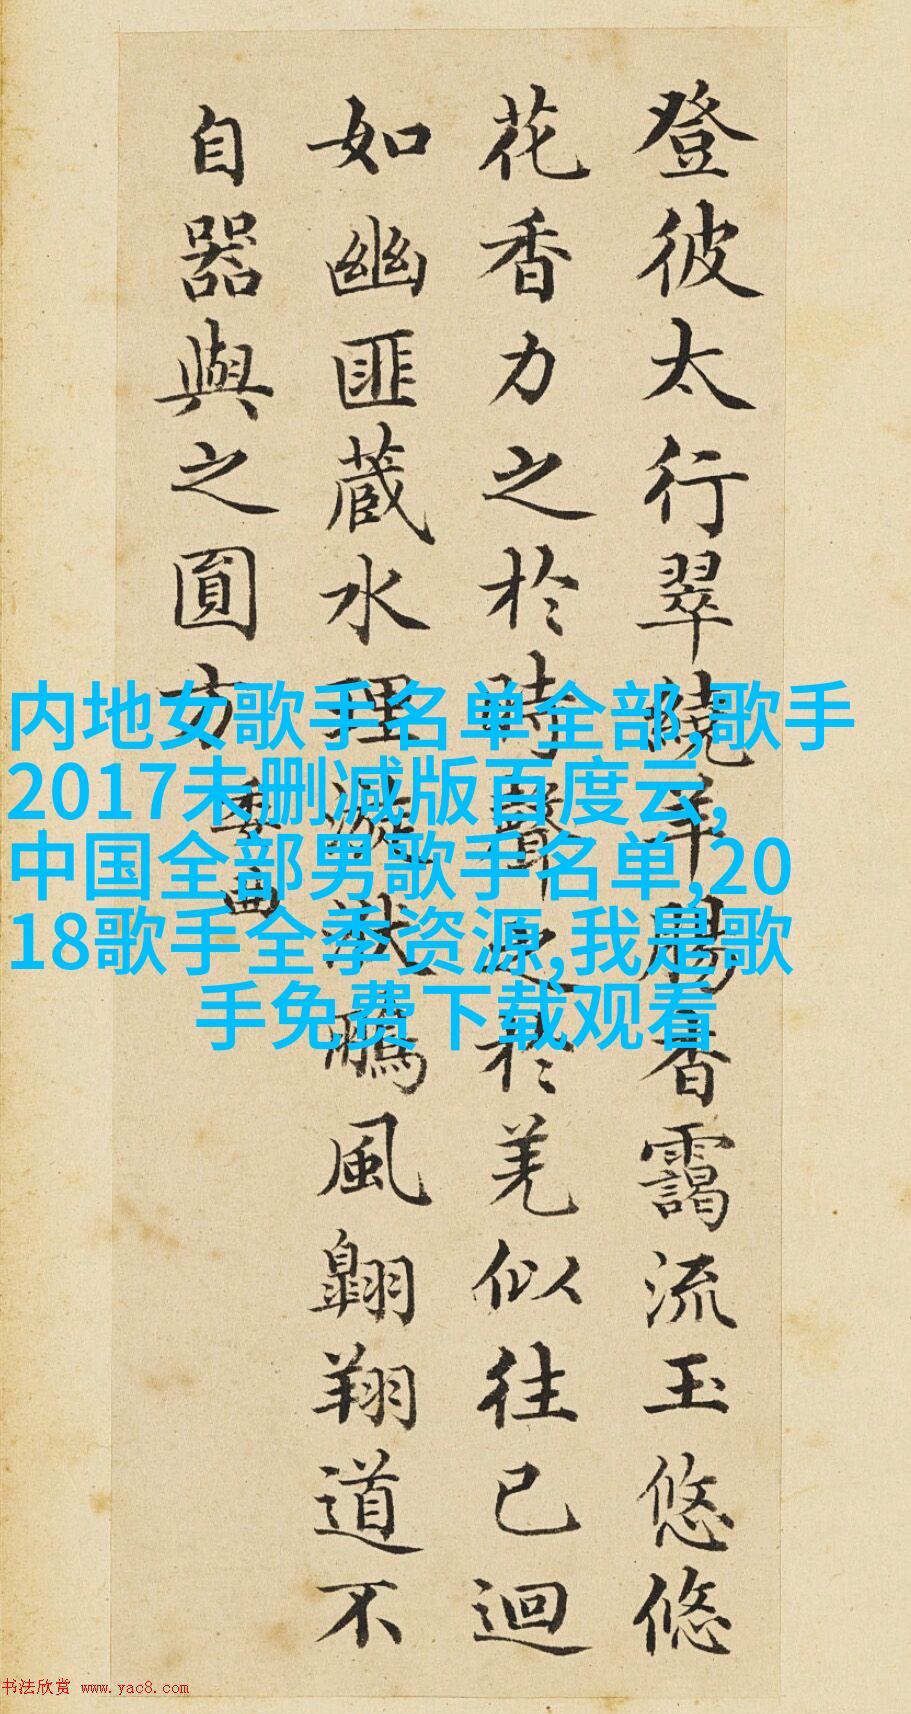 登彼太行翠繞羊腸杳靄流玉悠悠
花香力之於時聲之於羌似往已迴
如幽匪藏水理漩洑鵬風翺翔道不
自器與之圓方
委曲
内地女歌手名单全部,歌手
2017未删减版百度云,
中国全部男歌手名单,20
18歌手全季资源,我是歌
手免费下载观看
书法欣赏 www.yac8.com